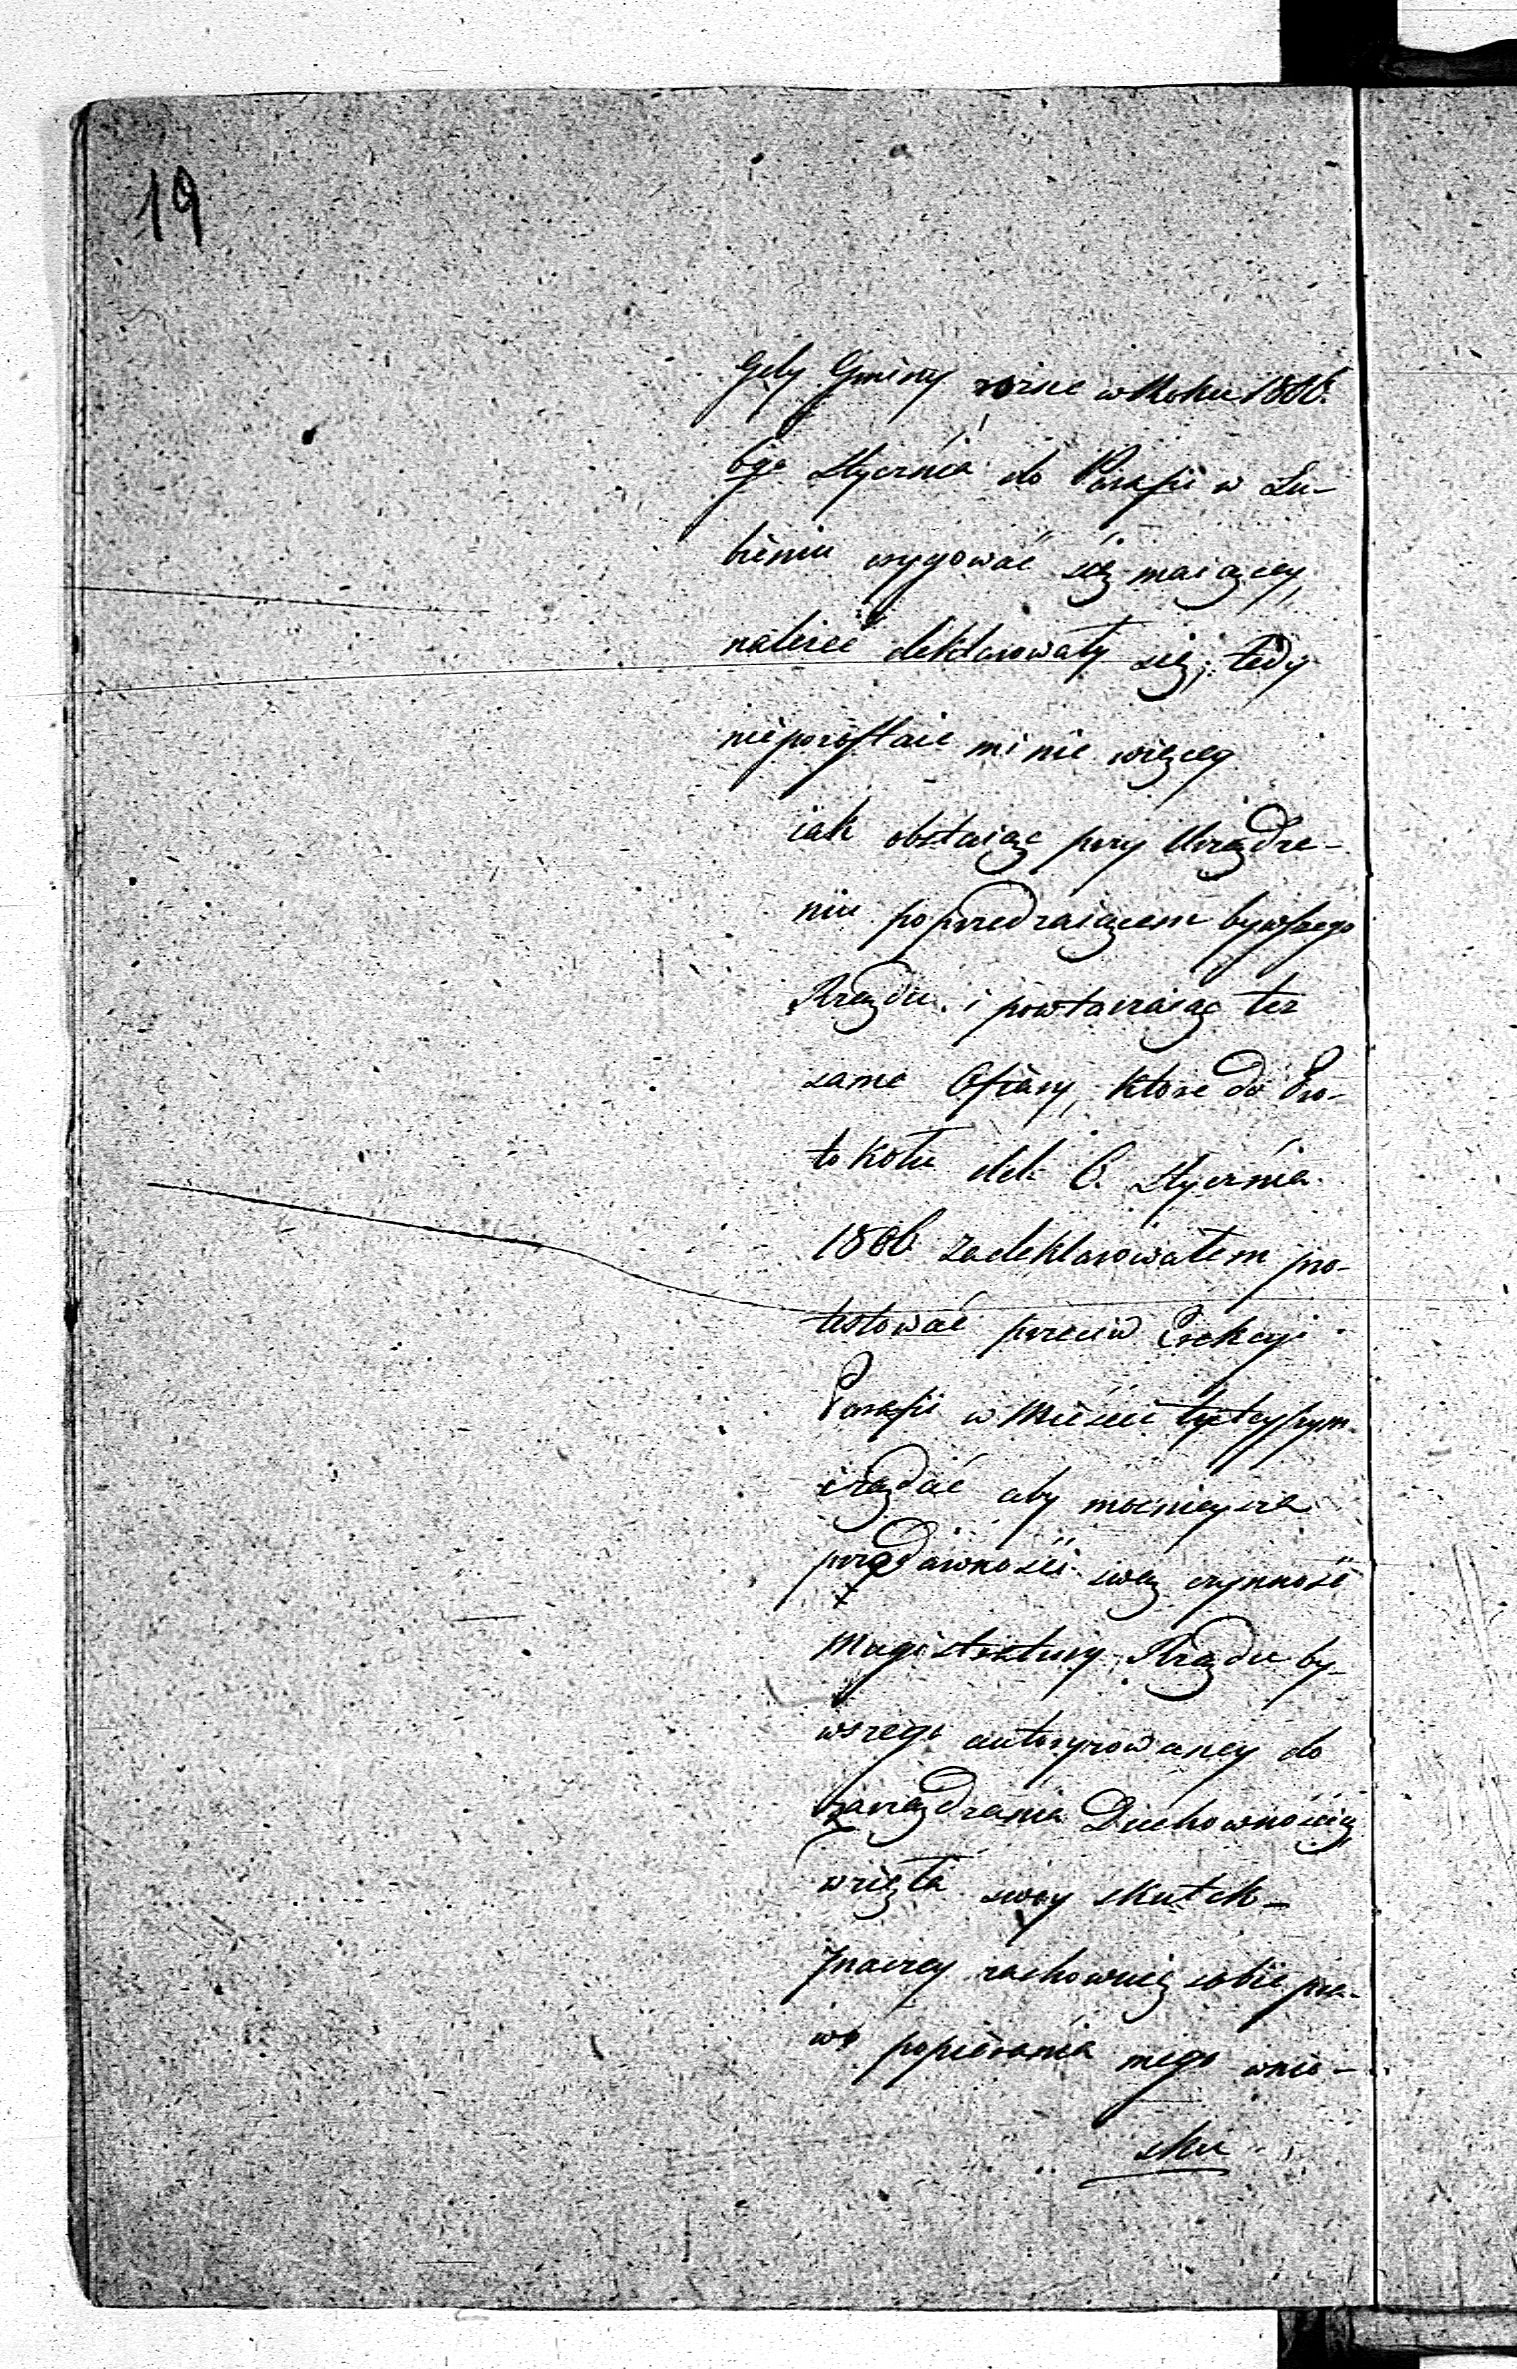 19
gdy Gminy rożne w Roku 1806.
6go Stycznia do Parafii w Lu-
bieniu erygować się maiącey,
należeć deklarowały się; tedy
niepozostaie mi nic więcey
iak obstaiąc przy Urządze-
niu poprzedzaiącem bywszego
Rządu i powtarzaiąc też
same Ofiary, które do Pro-
tokołu dd: 6. Stycznia
1806 zadeklarowałem pro-
testować przeciw Erekcyi
Parafii w Mieście tyteyszym
i żądać aby mocniejsza
przedawności swey czynność
Magistratury Rządu by-
wszego autoryzowaney do
zarządzania Duchownością
wzięła swoy skutek –
Inaczey zachowuię sobie pra-
wo popierania mego wnio-
sku